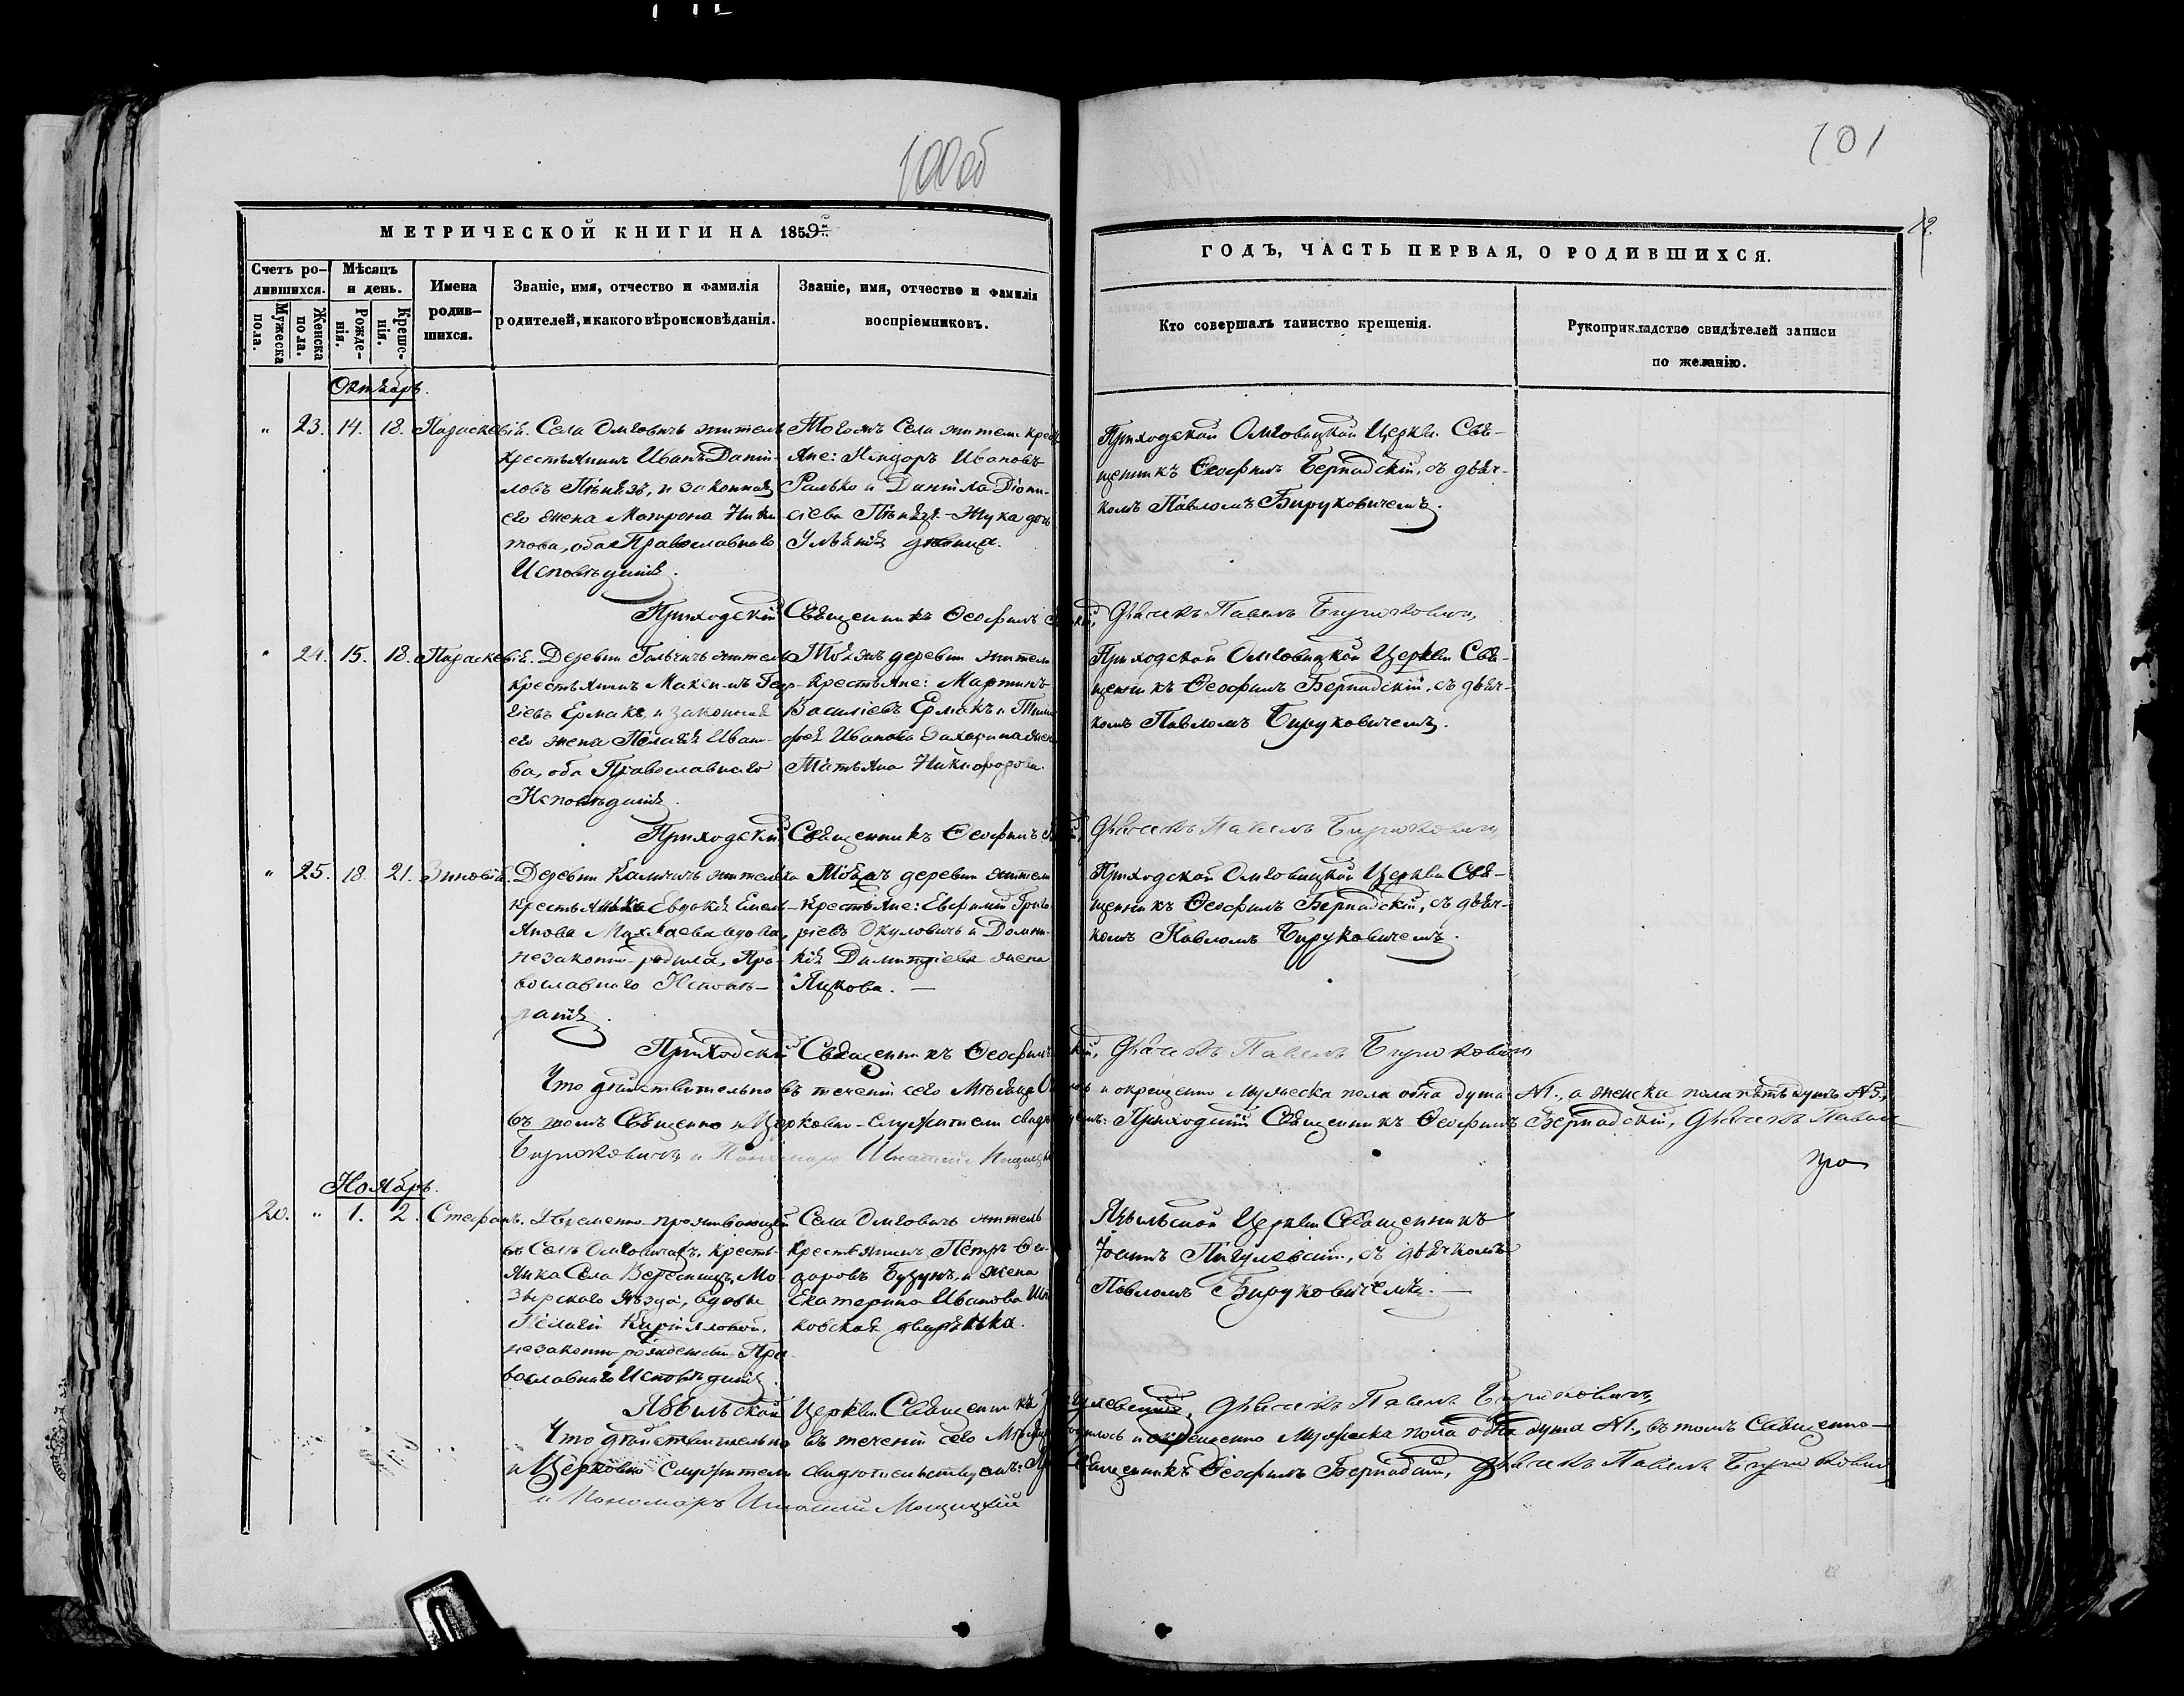 100об
101
12.
МЕТРИЧЕСКОЙ КНИГИ НА 1859
ГОДЪ, ЧАСТЬ ПЕРВАЯ, О РОДИВШИХСЯ.
Счетъ родившихся.
Мужеска пола.
Женска пола.
Мѣсяцъ и день.
Рожденія.
Крещенія.
Имена родившихся.
Званіе, имя, отчество и фамилія
родителей, и какого вѣроисповѣданія.
Званіе, имя, отчество и фамилія
воспріемниковъ.
Кто совершалъ таинство крещенія.
Рукоприкладство свидѣтелей записи
по желанію.
Октябрь.
" 23. 14. 18. Параскевія.
Села Омговичъ житель
крестьянинъ Иванъ Даніи-
ловъ Пѣнязь, и законная
его жена Матрона Ники-
това, оба Православнаго
Исповѣданія.
Того жъ Села жители
яне: Ивановъ
Ралько и Даніила Діони-
сіева Пѣнязя-Жука дочь
Уліянія дѣвица.
Приходской Омговицкой Церкви Свя-
щенникъ Ѳеофилъ Бернадскій, съ дьяч-
комъ Павломъ Бируковичемъ.
Приходскій Священникъ Ѳеофилъ
Дьячекъ Павелъ Бируковичъ
" 24. 15. 18. Параскевія.
Деревни Гольчичъ житель
крестьянинъ Максимъ Геор-
гіевъ Ермакъ, и законная
его жена Пелагія Ивано-
ва, оба Православнаго
Исповѣданія.
Тоя жъ деревни жители
крестьяне: Мартинъ
Василіевъ Ермакъ и Тимо-
фея Иванова Захарина жена
Татьяна Никифорова.
Приходской Омговицкой Церкви Свя-
щенникъ Ѳеофилъ Бернадскій, съ дьяч-
комъ Павломъ Бируковичемъ.
Приходскій Священникъ Ѳеофилъ
Дьячекъ Павелъ Бируковичъ
" 25. 18. 21. Зиновія.
Деревни Калчичъ жителька
крестьянка Евдокія Емель-
янова вдова,
незаконно-родила, Пра-
вославнаго Исповѣ-
данія.
Тоя жъ деревни жители
крестьяне: Евфимій Григо-
ріевъ Окуловичъ и Домни-
кія Димитріева жена
Яцкова.
Приходской Омговицкой Церкви Свя-
щенникъ Ѳеофилъ Бернадскій, съ дьяч-
комъ Павломъ Бируковичемъ.
Приходскій Священникъ Ѳеофилъ
Дьячекъ Павелъ Бируковичъ
Что дѣйствительно въ теченіи сего Мѣсяца и окрещенно мужеска пола одна душа №1., а женска пола пять душъ №5.,
въ томъ Священно и Церковно-служители Приходскій Священникъ Ѳеофилъ Бернадскій, Дьячекъ Павелъ
Бируковичъ и Пономарь Игнатій
Ноябрь.
20. " 1. 2. Стефанъ.
Временно-проживающей
въ Селѣ Омговичахъ, кресть-
янка Села Вересницы, Мо-
зырскаго Уѣзда, вдовы
Пелагіи Кирилловой,
незаконно-рожденный Пра-
вославнаго Исповѣданія.
Села Омговичъ житель
крестьянинъ Петръ Ѳео-
доровъ Бузунъ, и жена
Екатерина Иванова
ковская дворянка.
Язвильской Церкви Священникъ
Іоаннъ Пигулевскій, съ дьячкомъ
Павломъ Бируковичемъ.
Язвильской Церкви Священникъ
Дьячекъ Павелъ Бируковичъ,
Что дѣйствительно въ теченіи сего Мѣсяца родилось и окрещенно Мужеска пола одна душа №1., въ томъ Священно-
и Церковно Служители свидѣтельствуемъ: Священникъ Ѳеофилъ Бернадскій, Дьячекъ Павелъ Бируковичъ
и Пономарь Игнатій Мощицкій